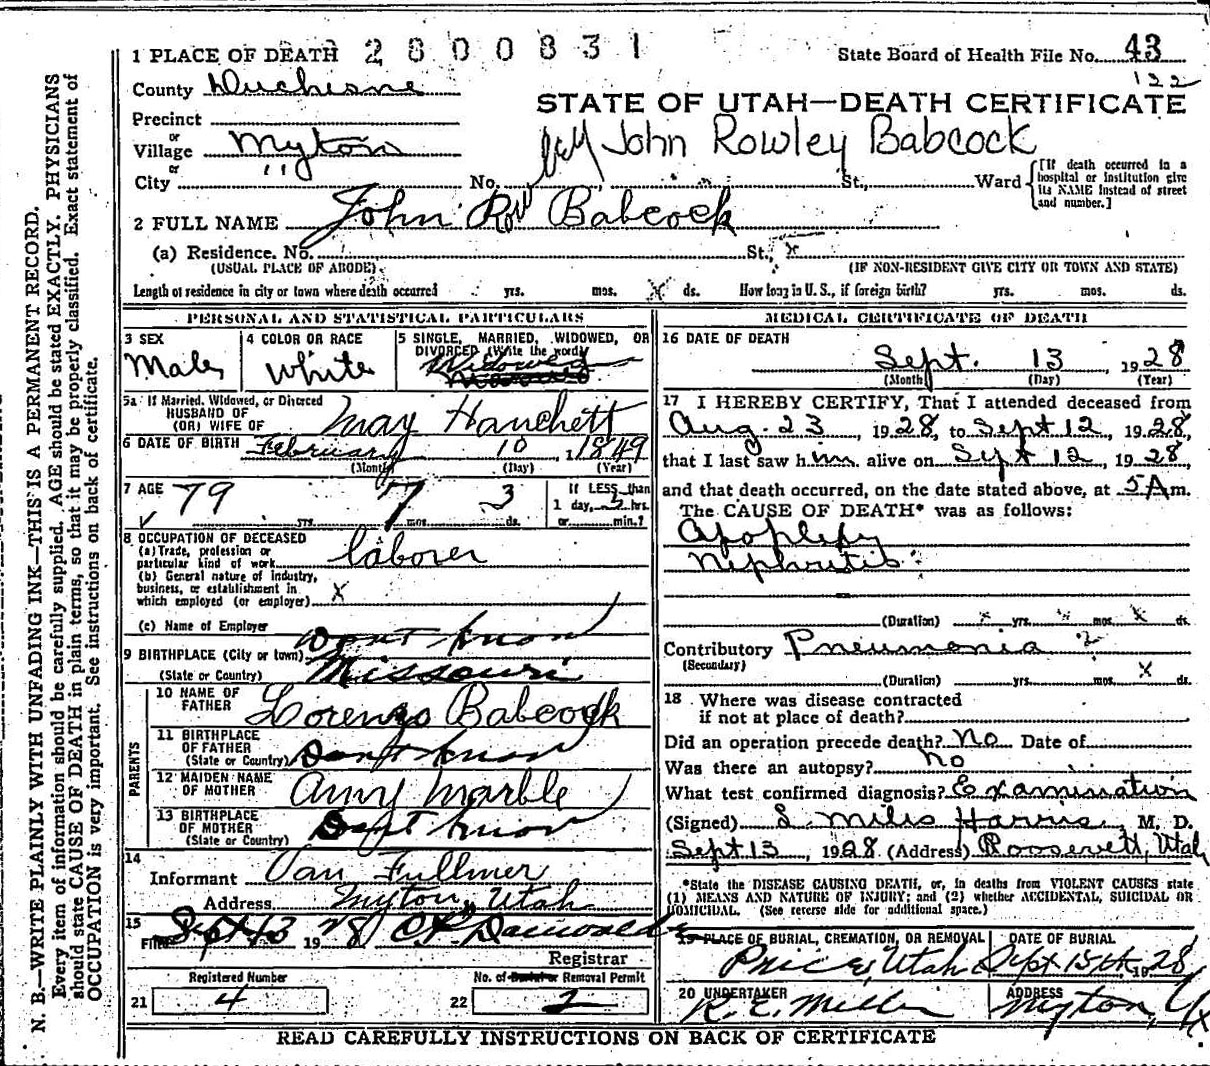 1 PLACE OF DEATH 2800831 State Board of Health File No. 43
122
County Duchesne
STATE OF UTAH—DEATH CERTIFICATE
Precinct
or
Village Myton
John Rowley Babcock
or
City " " No. St., Ward
[If death occurred in a hospital or institution give its NAME instead of street and number.]
2 FULL NAME John Row Babcock
(a) Residence. No. St., x
(USUAL PLACE OF ABODE) (IF NON-RESIDENT GIVE CITY OR TOWN AND STATE)
Length of residence in city or town where death occurred yrs. mos. x ds. How long in U. S., if foreign birth? yrs. mos. ds.
PERSONAL AND STATISTICAL PARTICULARS
3 SEX
Male
4 COLOR OR RACE
White
5 SINGLE, MARRIED, WIDOWED, OR
DIVORCED (Write the word)
Widowed
5a If Married, Widowed, or Divorced
HUSBAND OF
(OR) WIFE OF May Hanchett
6 DATE OF BIRTH February 10, 1849
(Month) (Day) (Year)
7 AGE 79 yrs. 7 mos. 3 ds.
If LESS than
1 day, hrs.
or min.?
8 OCCUPATION OF DECEASED
(a) Trade, profession or
particular kind of work laborer
(b) General nature of industry,
business, or establishment in
which employed (or employer) x
(c) Name of Employer
dont know
9 BIRTHPLACE (City or town)
(State or Country) Missouri
PARENTS
10 NAME OF
FATHER Lorenzo Babcock
11 BIRTHPLACE
OF FATHER
(State or Country) Dont know
12 MAIDEN NAME
OF MOTHER Amy Marble
13 BIRTHPLACE
OF MOTHER
(State or Country) Dont know
14
Informant Van Fullmer
Address Myton, Utah
15
Filed Sept 13 1928
Registrar
Registered Number
21 4
No. of Burial or Removal Permit
22 2
MEDICAL CERTIFICATE OF DEATH
16 DATE OF DEATH
Sept. 13, 1928
(Month) (Day) (Year)
17 I HEREBY CERTIFY, That I attended deceased from
Aug. 23, 1928, to Sept 12, 1928,
that I last saw him alive on Sept 12, 1928,
and that death occurred, on the date stated above, at 5 A m.
The CAUSE OF DEATH* was as follows:
Apoplexy
Nephritis
(Duration) x yrs. x mos. x ds.
Contributory Pneumonia ?
(Secondary)
(Duration) yrs. mos. x ds.
18 Where was disease contracted
if not at place of death?
Did an operation precede death? No Date of
Was there an autopsy? No
What test confirmed diagnosis? Examination
(Signed) L Miles Harris, M. D.
Sept 13, 1928 (Address) Roosevelt, Utah
*State the DISEASE CAUSING DEATH, or, in deaths from VIOLENT CAUSES state
(1) MEANS AND NATURE OF INJURY; and (2) whether ACCIDENTAL, SUICIDAL OR
HOMICIDAL. (See reverse side for additional space.)
19 PLACE OF BURIAL, CREMATION, OR REMOVAL
Price, Utah
DATE OF BURIAL
Sept 15th, 1928
20 UNDERTAKER
ADDRESS
Myton, Ut
READ CAREFULLY INSTRUCTIONS ON BACK OF CERTIFICATE
N. B.—WRITE PLAINLY WITH UNFADING INK—THIS IS A PERMANENT RECORD.
Every item of information should be carefully supplied. AGE should be stated EXACTLY. PHYSICIANS
should state CAUSE OF DEATH in plain terms, so that it may be properly classified. Exact statement of
OCCUPATION is very important. See instructions on back of certificate.